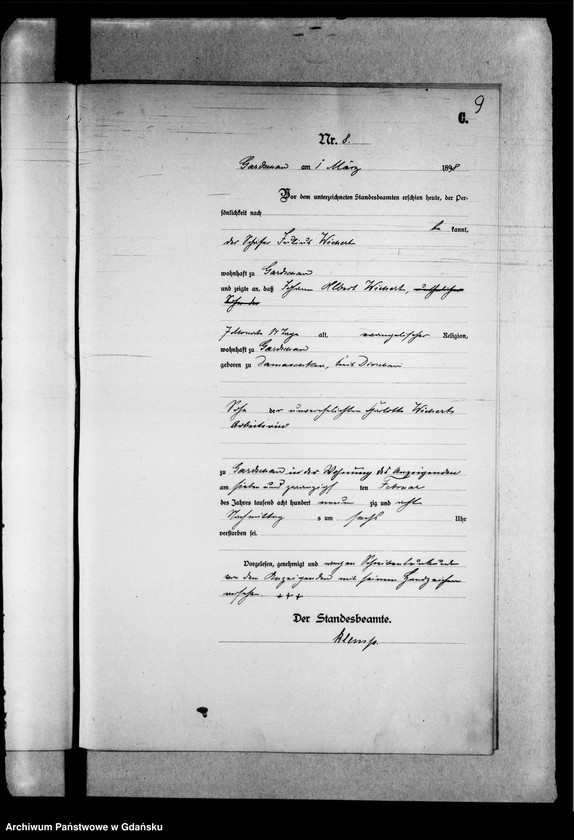 9
C.
Nr. 8.
am 1 März 1898
Vor dem unterzeichneten Standesbeamten erschien heute, der Per-
sönlichkeit nach
be kannt,
der Schäfer Julius Wichert
wohnhaft zu
und zeigte an, daß Johann Albert Wichert,
Sohn der
7 Monate Tage alt, evangelischer Religion,
wohnhaft zu
geboren zu Damaschken, Kreis Dirschau
Sohn der unverehelichten Charlotte Wichert
Arbeiterin
zu in der Wohnung des Anzeigenden
am sieben und zwanzigsten ten Februar
des Jahres tausend acht hundert neun zig und acht
Nachmittag s um sechs Uhr
verstorben sei.
Vorgelesen, genehmigt und wegen Schreibensunkunde
von dem Anzeigenden mit seinem Handzeichen
versehen. +++
Der Standesbeamte.
Archiwum Państwowe w Gdańsku